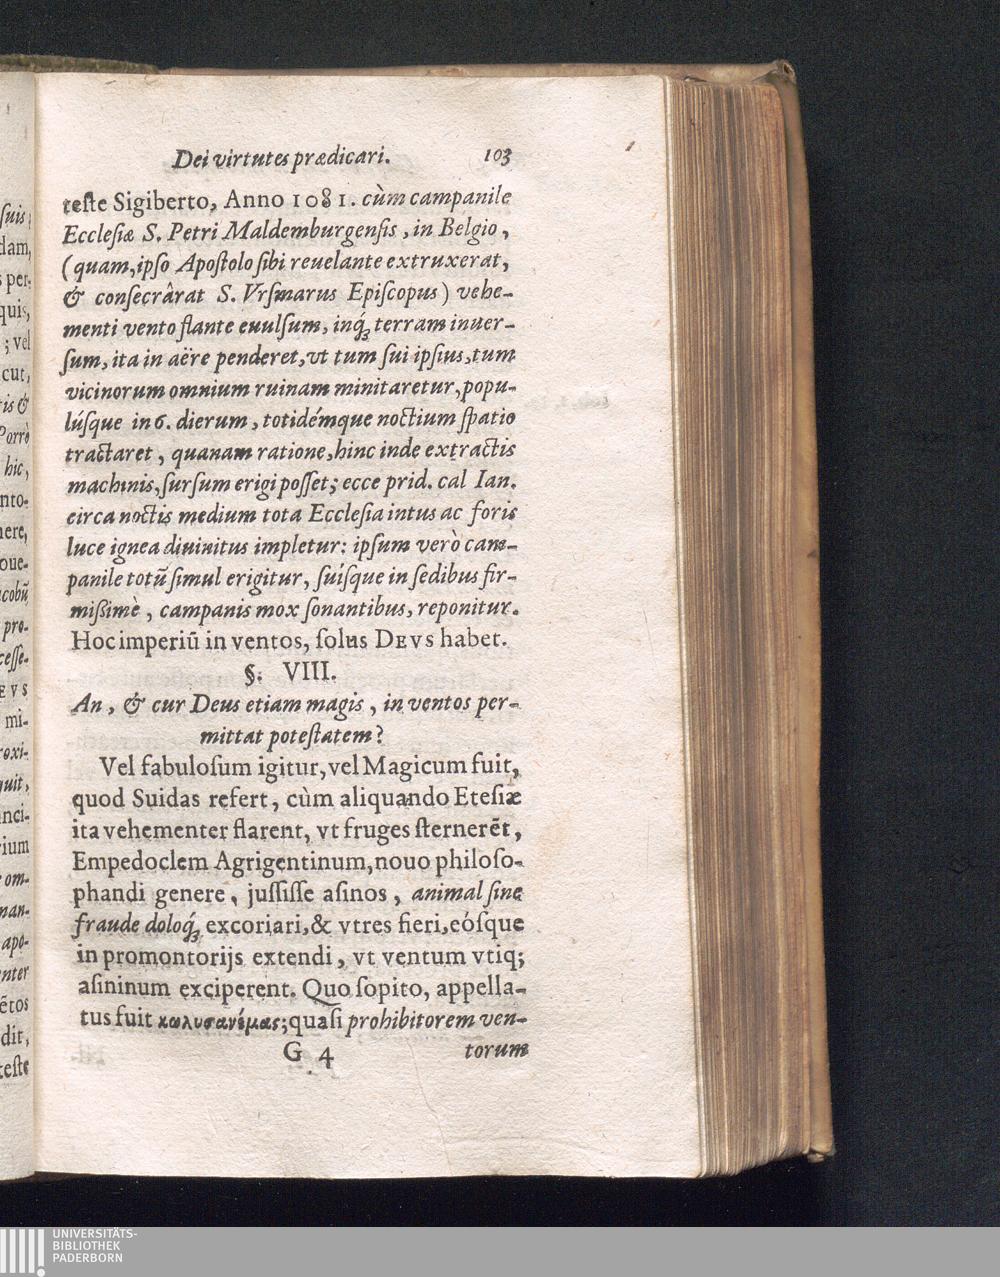 Dei virtutes prædicari. 103
teſte Sigiberto, Anno 1081. cùm campanile
Eccleſiæ S. Petri Maldemburgenſis, in Belgio,
(quam, ipſo Apoſtolo ſibi reuelante extruxerat,
& conſecrârat S. Vrſmarus Epiſcopus) vehe-
menti vento flante euulſum, inq́ꝫ terram inuer-
ſum, ita in aëre penderet, vt tum ſui ipſius, tum
vicinorum omnium ruinam minitaretur, popu-
lúſque in 6. dierum, totidémque noctium ſpatio
tractaret, quanam ratione, hinc inde extractis
machinis, ſurſum erigi poſſet; ecce prid. cal Ian.
circa noctis medium tota Eccleſia intus ac foris
luce ignea diuinitus impletur: ipſum verò cam-
panile totũ ſimul erigitur, ſuíſque in ſedibus fir-
mißimè, campanis mox ſonantibus, reponitur.
Hoc imperiũ in ventos, ſolus DEVS habet.
§. VIII.
An, & cur Deus etiam magis, in ventos per-
mittat poteſtatem?
Vel fabuloſum igitur, vel Magicum fuit,
quod Suidas refert, cùm aliquando Eteſiæ
ita vehementer flarent, vt fruges ſternerẽt,
Empedoclem Agrigentinum, nouo philoſo-
phandi genere, juſſiſſe aſinos, animal ſine
fraude doloq́ꝫ excoriari, & vtres fieri, eóſque
in promontorijs extendi, vt ventum vtiq;
aſininum exciperent. Quo ſopito, appella-
tus fuit κωλυσανέμας; quaſi prohibitorem ven-
G 4 torum
ſuis;
dam,
per-
quis,
; vel
cut,
tis &
Porrò
hic,
nto-
nere,
oue-
acobũ
pro-
ceſſe-
EVS
mi-
roxi-
quit,
nci-
rium
om-
nan-
apo-
nter
ẽtos
dit,
teſte
UNIVERSITÄTS-
BIBLIOTHEK
PADERBORN